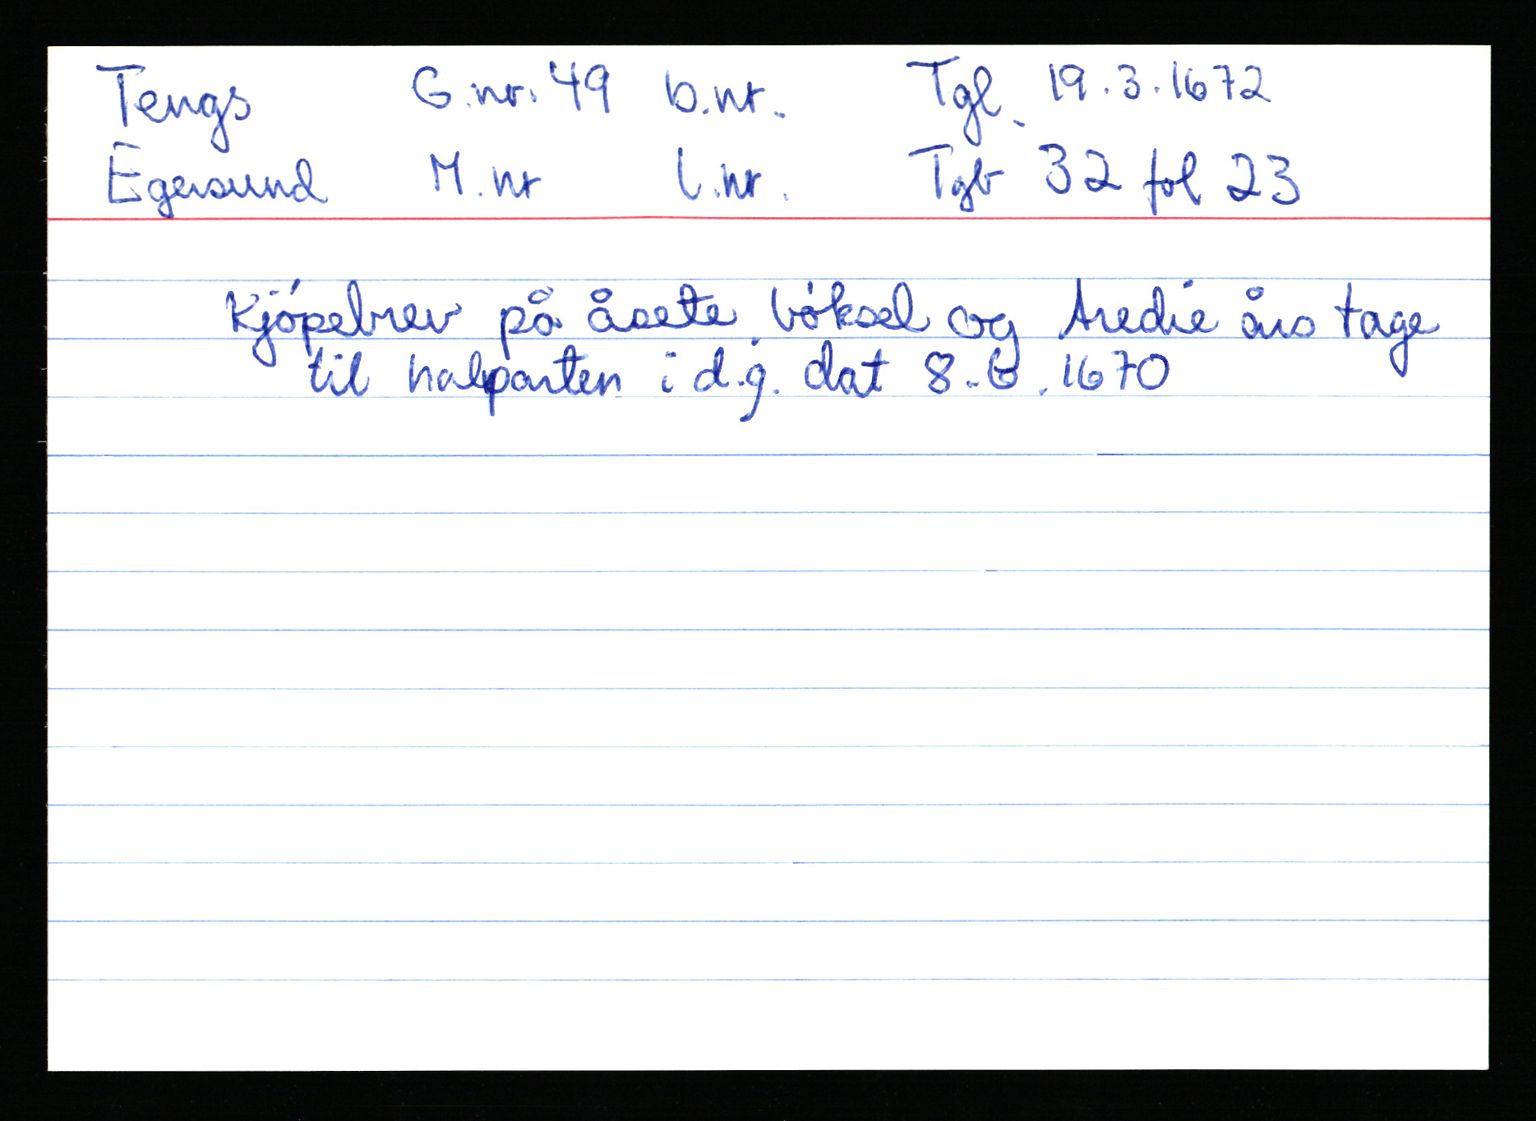 Tengs G.nr. 49 b.nr. Tgl. 19.3.1672
Egersund M.nr l.nr. Tgb 32 fol 23
Kjópebrev på åsete bóksel og tredie års tage
til halparten i d.g. dat 8.6.1670